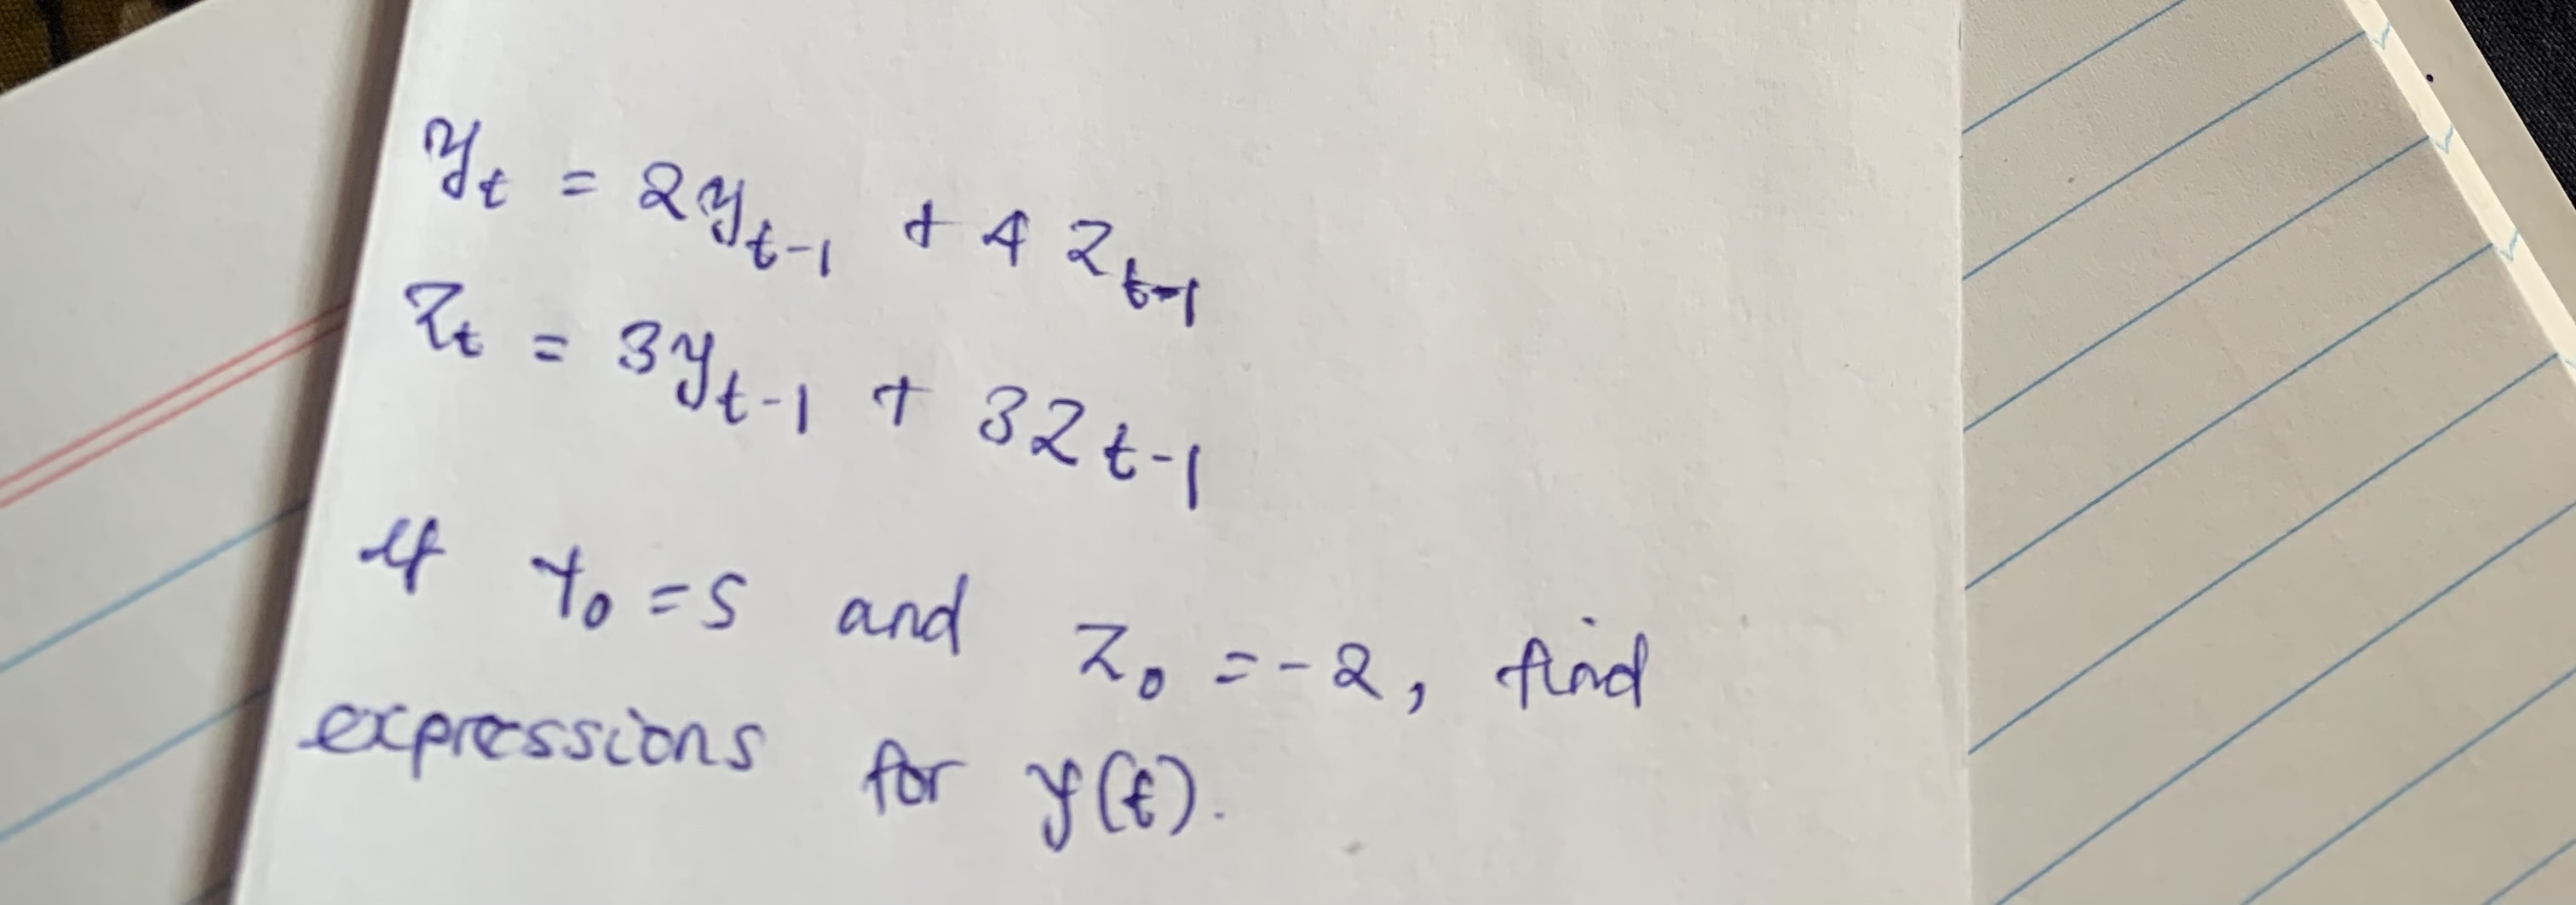 y_t = 2y_{t-1} + 4 z_{t-1}
z_t = 3y_{t-1} + 3z_{t-1}
If Y_0 = 5 and Z_0 = -2, find
expressions for y(t).